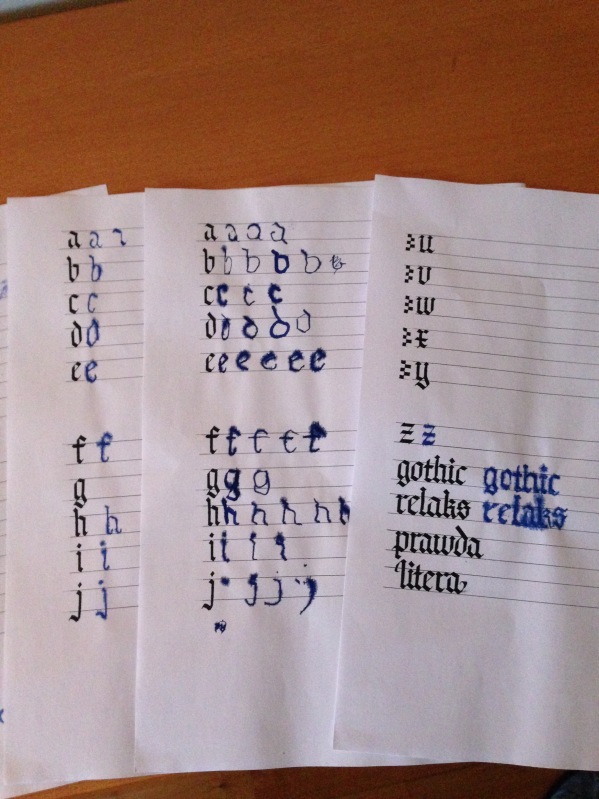 a a
b b
c c
d d
e e
f f
g
h h
i i
j j
a a a a a
b b b b b
c c c c
d d d d d
e e e e e e
f f f f f
g g g
h h h h h h
i i i i
j j j j
u
v
w
x
y
z z
gothic gothic
relaks relaks
prawda
litera